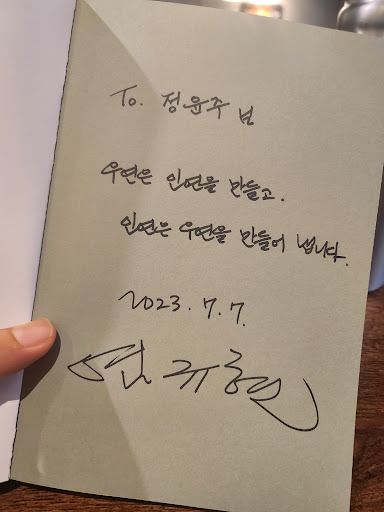 To. 정윤주 님
우연은 인연을 만들고.
인연은 우연을 만들어 냅니다.
2023. 7. 7.